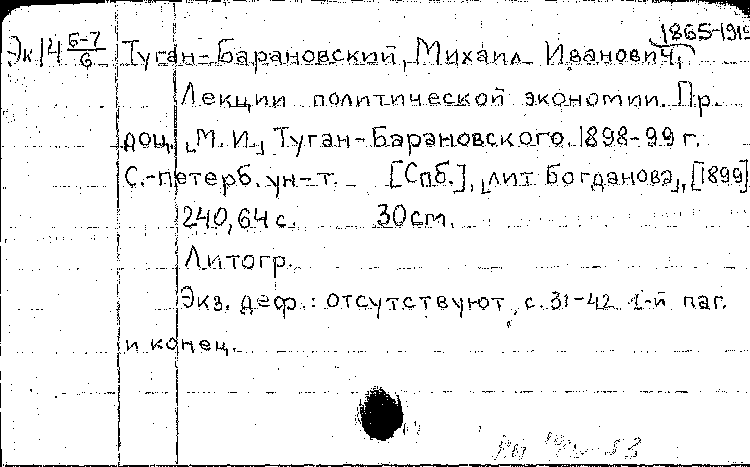 1865-1919
Эк 14 6-7/6 Туган-Барановский, Михаил Иванович,
Лекции политической экономии. Пр.
доц. М. И. Туган-Барановского. 1898-99 г.
С.-петерб. ун-т. [Спб.], лит Богданова, [1899]
240, 64 с. 30 см.
Литогр.
Экз. деф.: отсутствуют с. 31-42 1-й паг.
и конец.